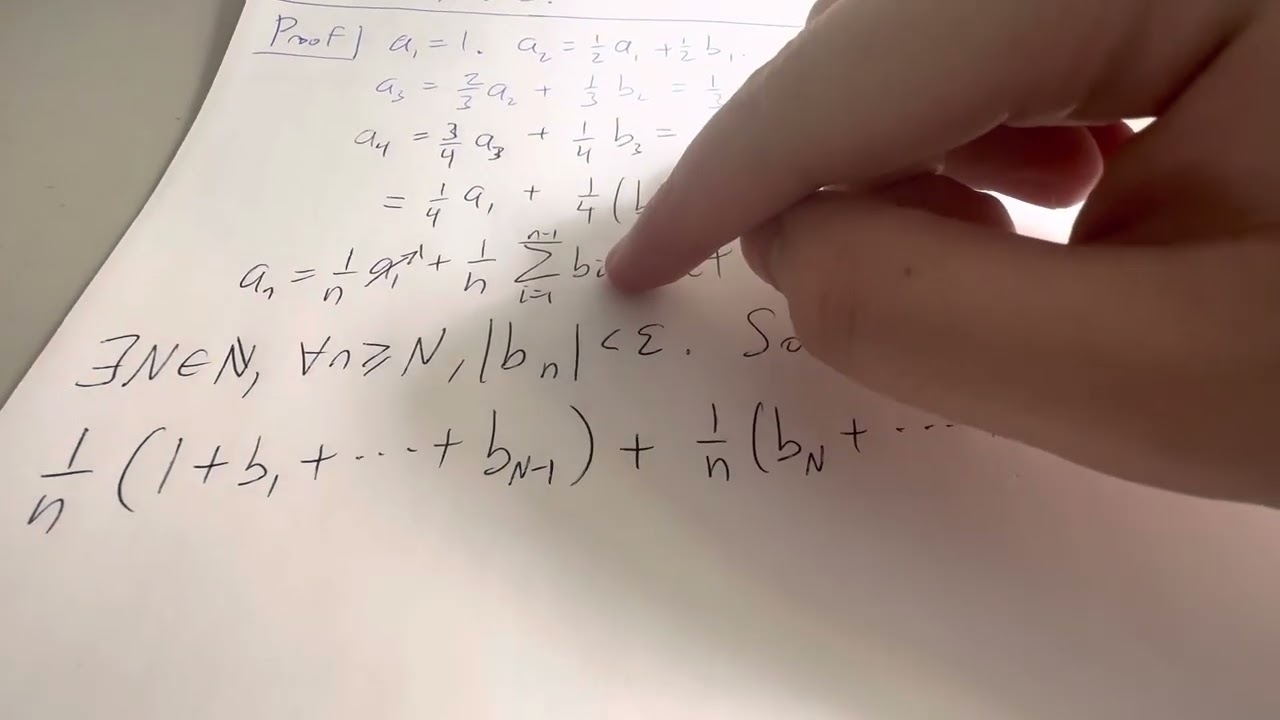 Proof] a₁ = 1. a₂ = ½ a₁ + ½ b₁.
a₃ = ⅔ a₂ + ⅓ b₂ = ⅓
a₄ = ¾ a₃ + ¼ b₃ =
= ¼ a₁ + ¼ (b
aₙ = 1/n a₁→1 + 1/n ∑_{i=1}^{n-1} bᵢ
∃N∈ℕ, ∀n⩾N, |bₙ| < ε. So
1/n (1 + b₁ + ··· + b_{N-1}) + 1/n (b_N + ····